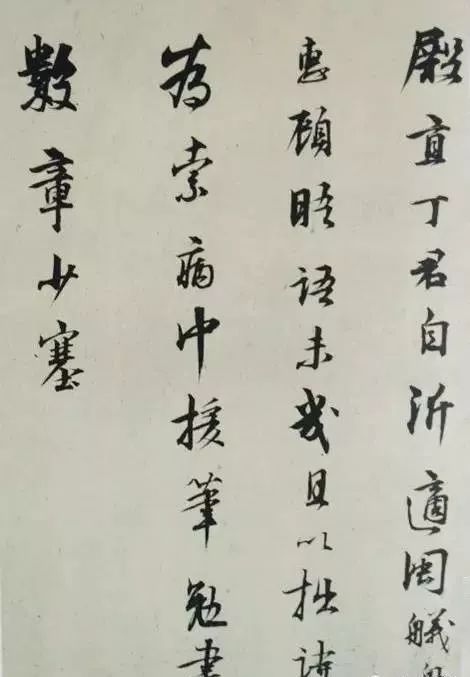 殿直丁君自沂適閩艤
惠顧晤語未幾且以拙詩
為索病中援筆勉書
數章少塞